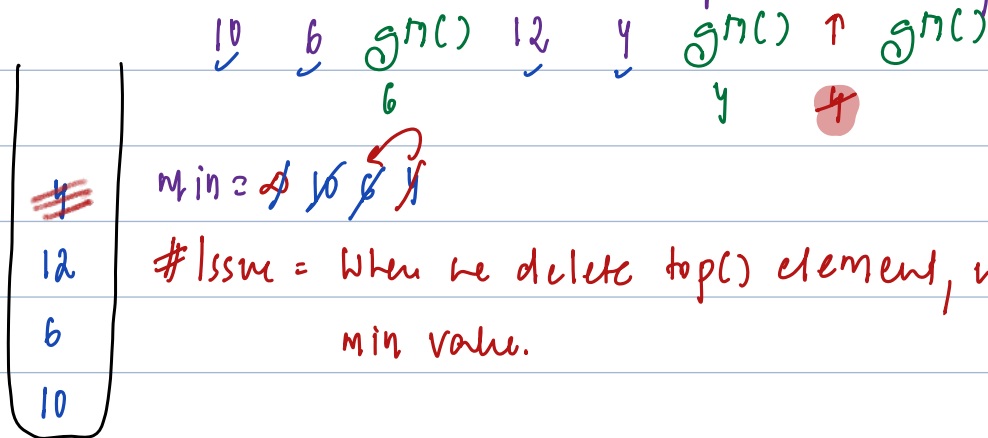 10 6 gm() 12 4 gm() ↑ gm()
6 4 4
4 min = ∞ 10 6 4
12 #Issue = When we delete top() element,
6 min value.
10